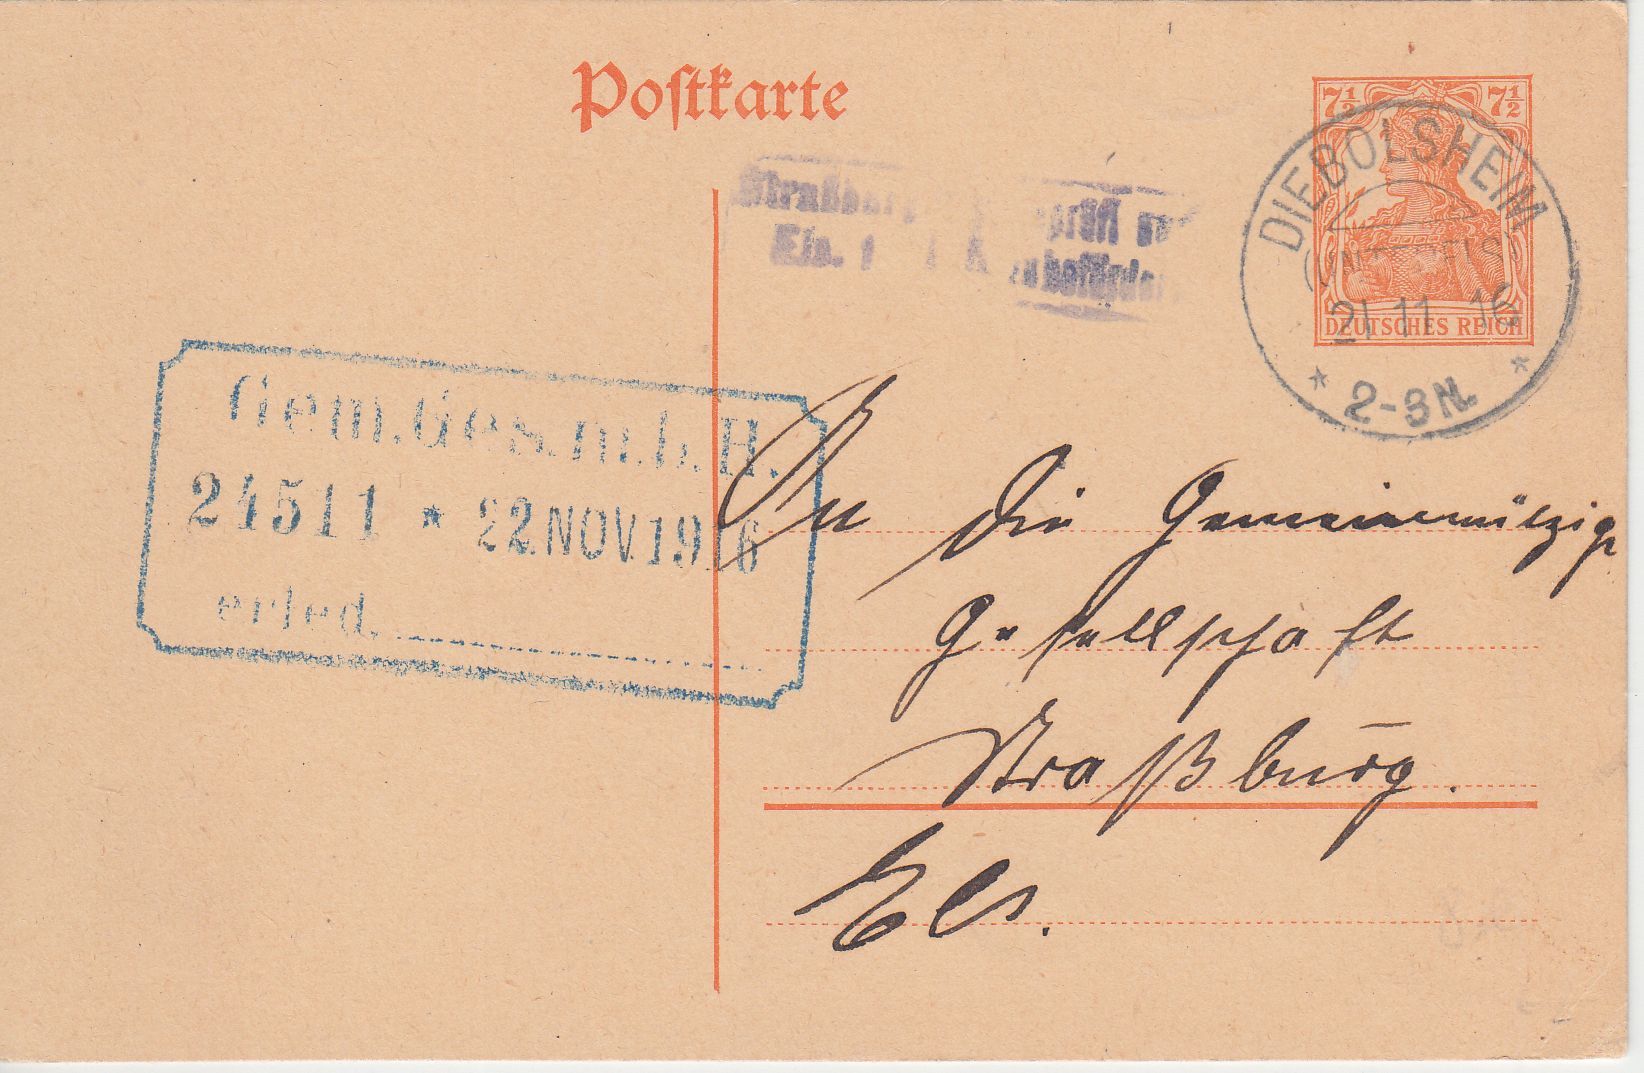 Postkarte
7½ 7½
DEUTSCHES REICH
DIEBOLSHEIM
21.11.16
* 2-3N. *
Els.
Gem.Ges.m.b.H.
24511 * 22.NOV.1916
erled.
An die Gemeinnützige
Gesellschaft
Straßburg.
Els.